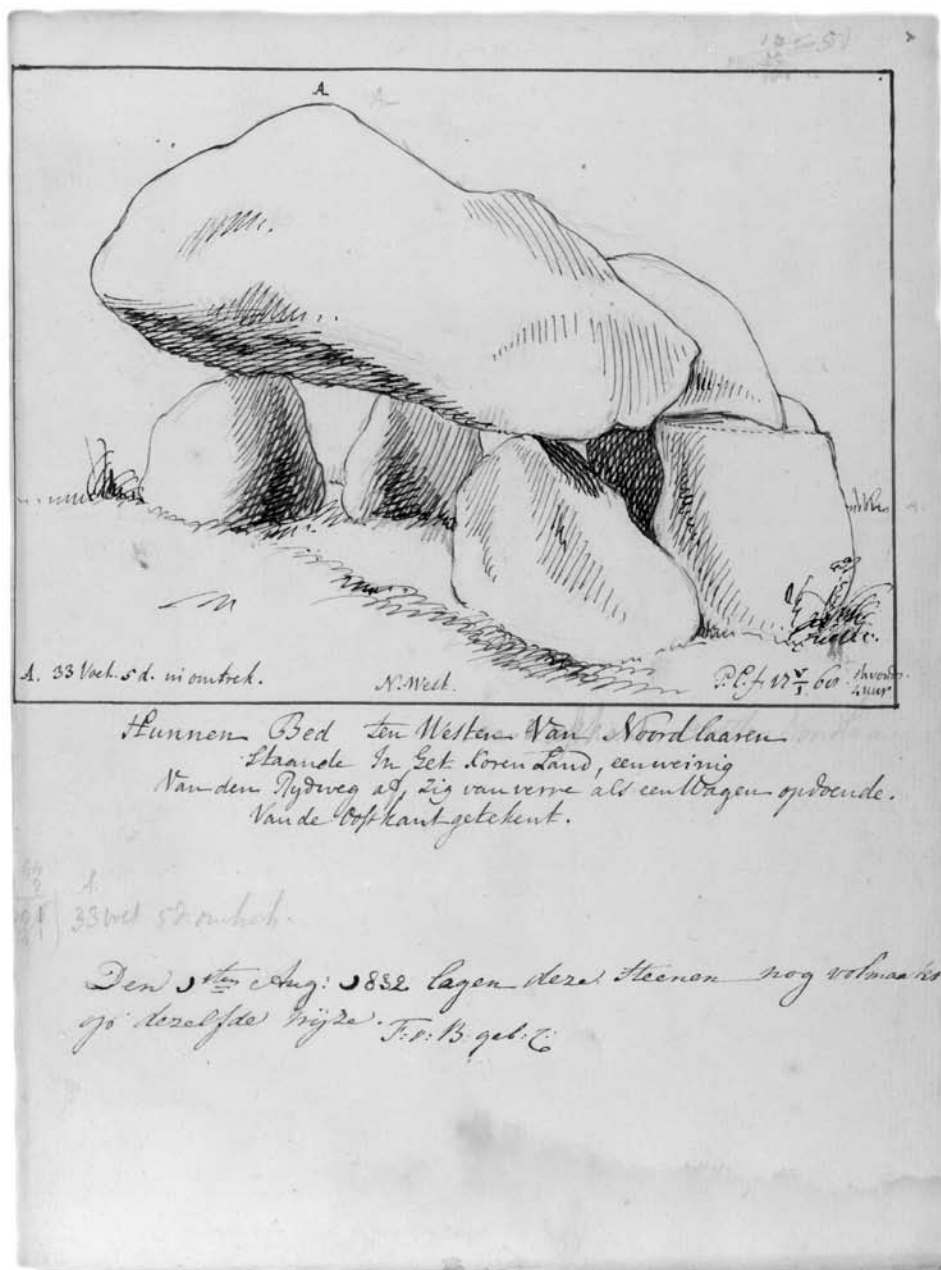 A
A. 33 Voet. 5 d. in omtrek.
N. West.
P. C. f. 17 V/I 68.
4 uur
Hunnen Bed ten Westen Van Noordlaaren
Staande In het Koren Land, een weinig
Van den Rydweg af, zig van verre als een Wagen opdoende.
Van de Oostkant getekent.
A.
33 voet 5 d. omtrek.
Den 1sten Aug: 1832 lagen deze Steenen nog volmaakt
op dezelfde wijze. F: v: B: geb: C: